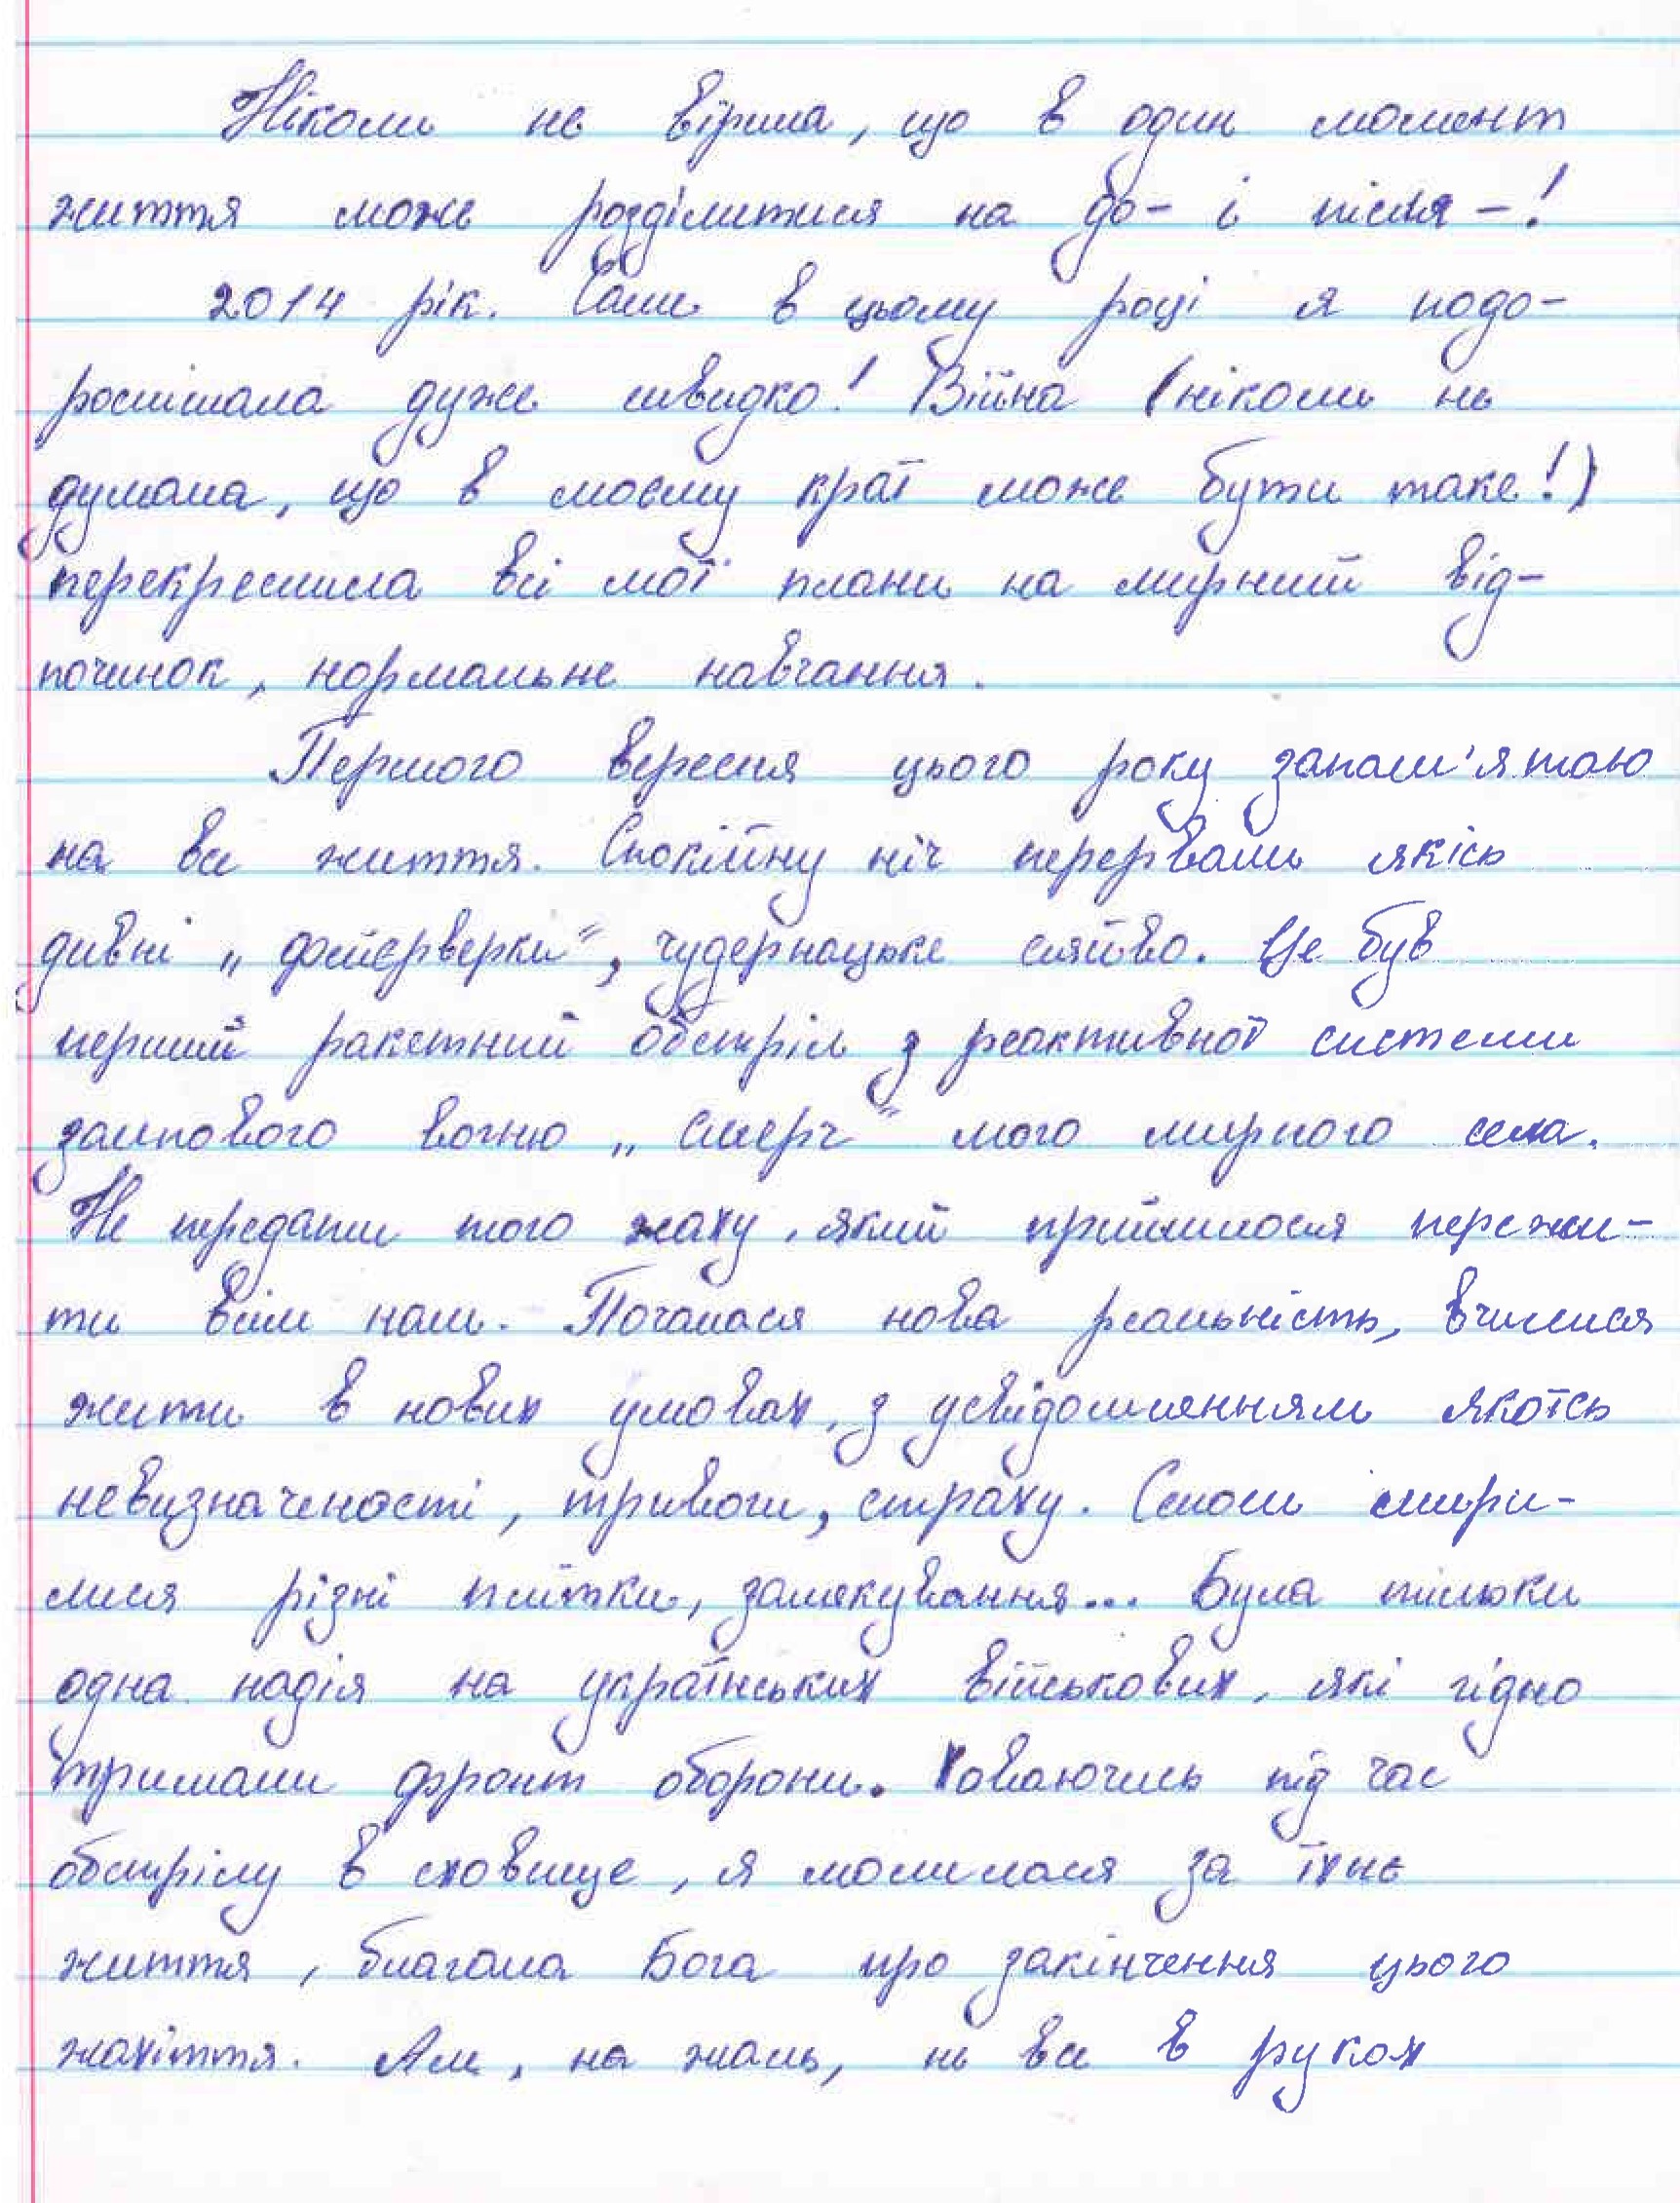 Ніколи не вірила, що в один момент
життя може розділитися на до- і після-!
2014 рік. Саме в цьому році я подо-
рослішала дуже швидко! Війна (ніколи не
думала, що в моєму краї може бути таке!)
перекреслила всі мої плани на мирний від-
починок, нормальне навчання.
Першого вересня цього року запам'ятаю
на все життя. Спокійну ніч перервали якісь
дивні „фейєрверки", чудернацьке сяйво. Це був
перший ракетний обстріл з реактивної системи
залпового вогню „Смерч" мого мирного села.
Не передати того жаху, який прийшлося пережи-
ти всім нам. Почалася нова реальність, вчилися
жити в нових умовах, з усвідомленням якоїсь
невизначеності, тривоги, страху. Селом шири-
лися різні плітки, залякування... Була тільки
одна надія на українських військових, які гідно
тримали фронт оборони. Ховаючись під час
обстрілу в сховище, я молилася за їхнє
життя, благала Бога про закінчення цього
жахіття. Але, на жаль, не все в руках